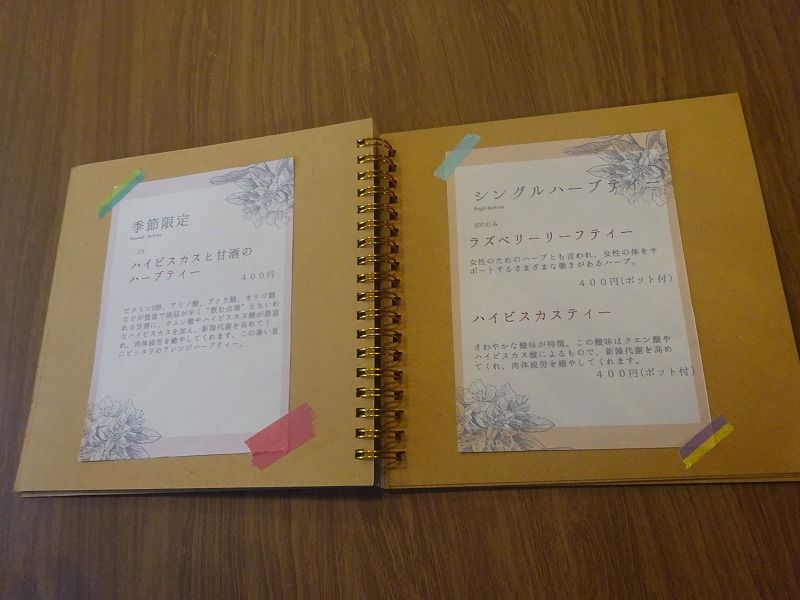 季節限定
Seasonal herb tea
ハイビスカスと甘酒の
ハーブティー ４００円
ビタミンB群、アミノ酸、ブドウ糖、オリゴ糖
などが豊富で吸収が早く“飲む点滴”ともいわ
れる甘酒に、クエン酸やハイビスカス酸が豊富
なハイビスカスを加え、新陳代謝を高めてく
れ、肉体疲労を癒やしてくれます。この暑い夏
にピッタリのアレンジハーブティー。
シングルハーブティ
Single herb tea
HOTのみ
ラズベリーリーフティー
女性のためのハーブとも言われ、女性の体をサ
ポートするさまざまな働きがあるハーブ。
４００円(ポット付)
ハイビスカスティー
さわやかな酸味が特徴。この酸味はクエン酸や
ハイビスカス酸によるもので、新陳代謝を高め
てくれ、肉体疲労を癒やしてくれます。
４００円(ポット付)